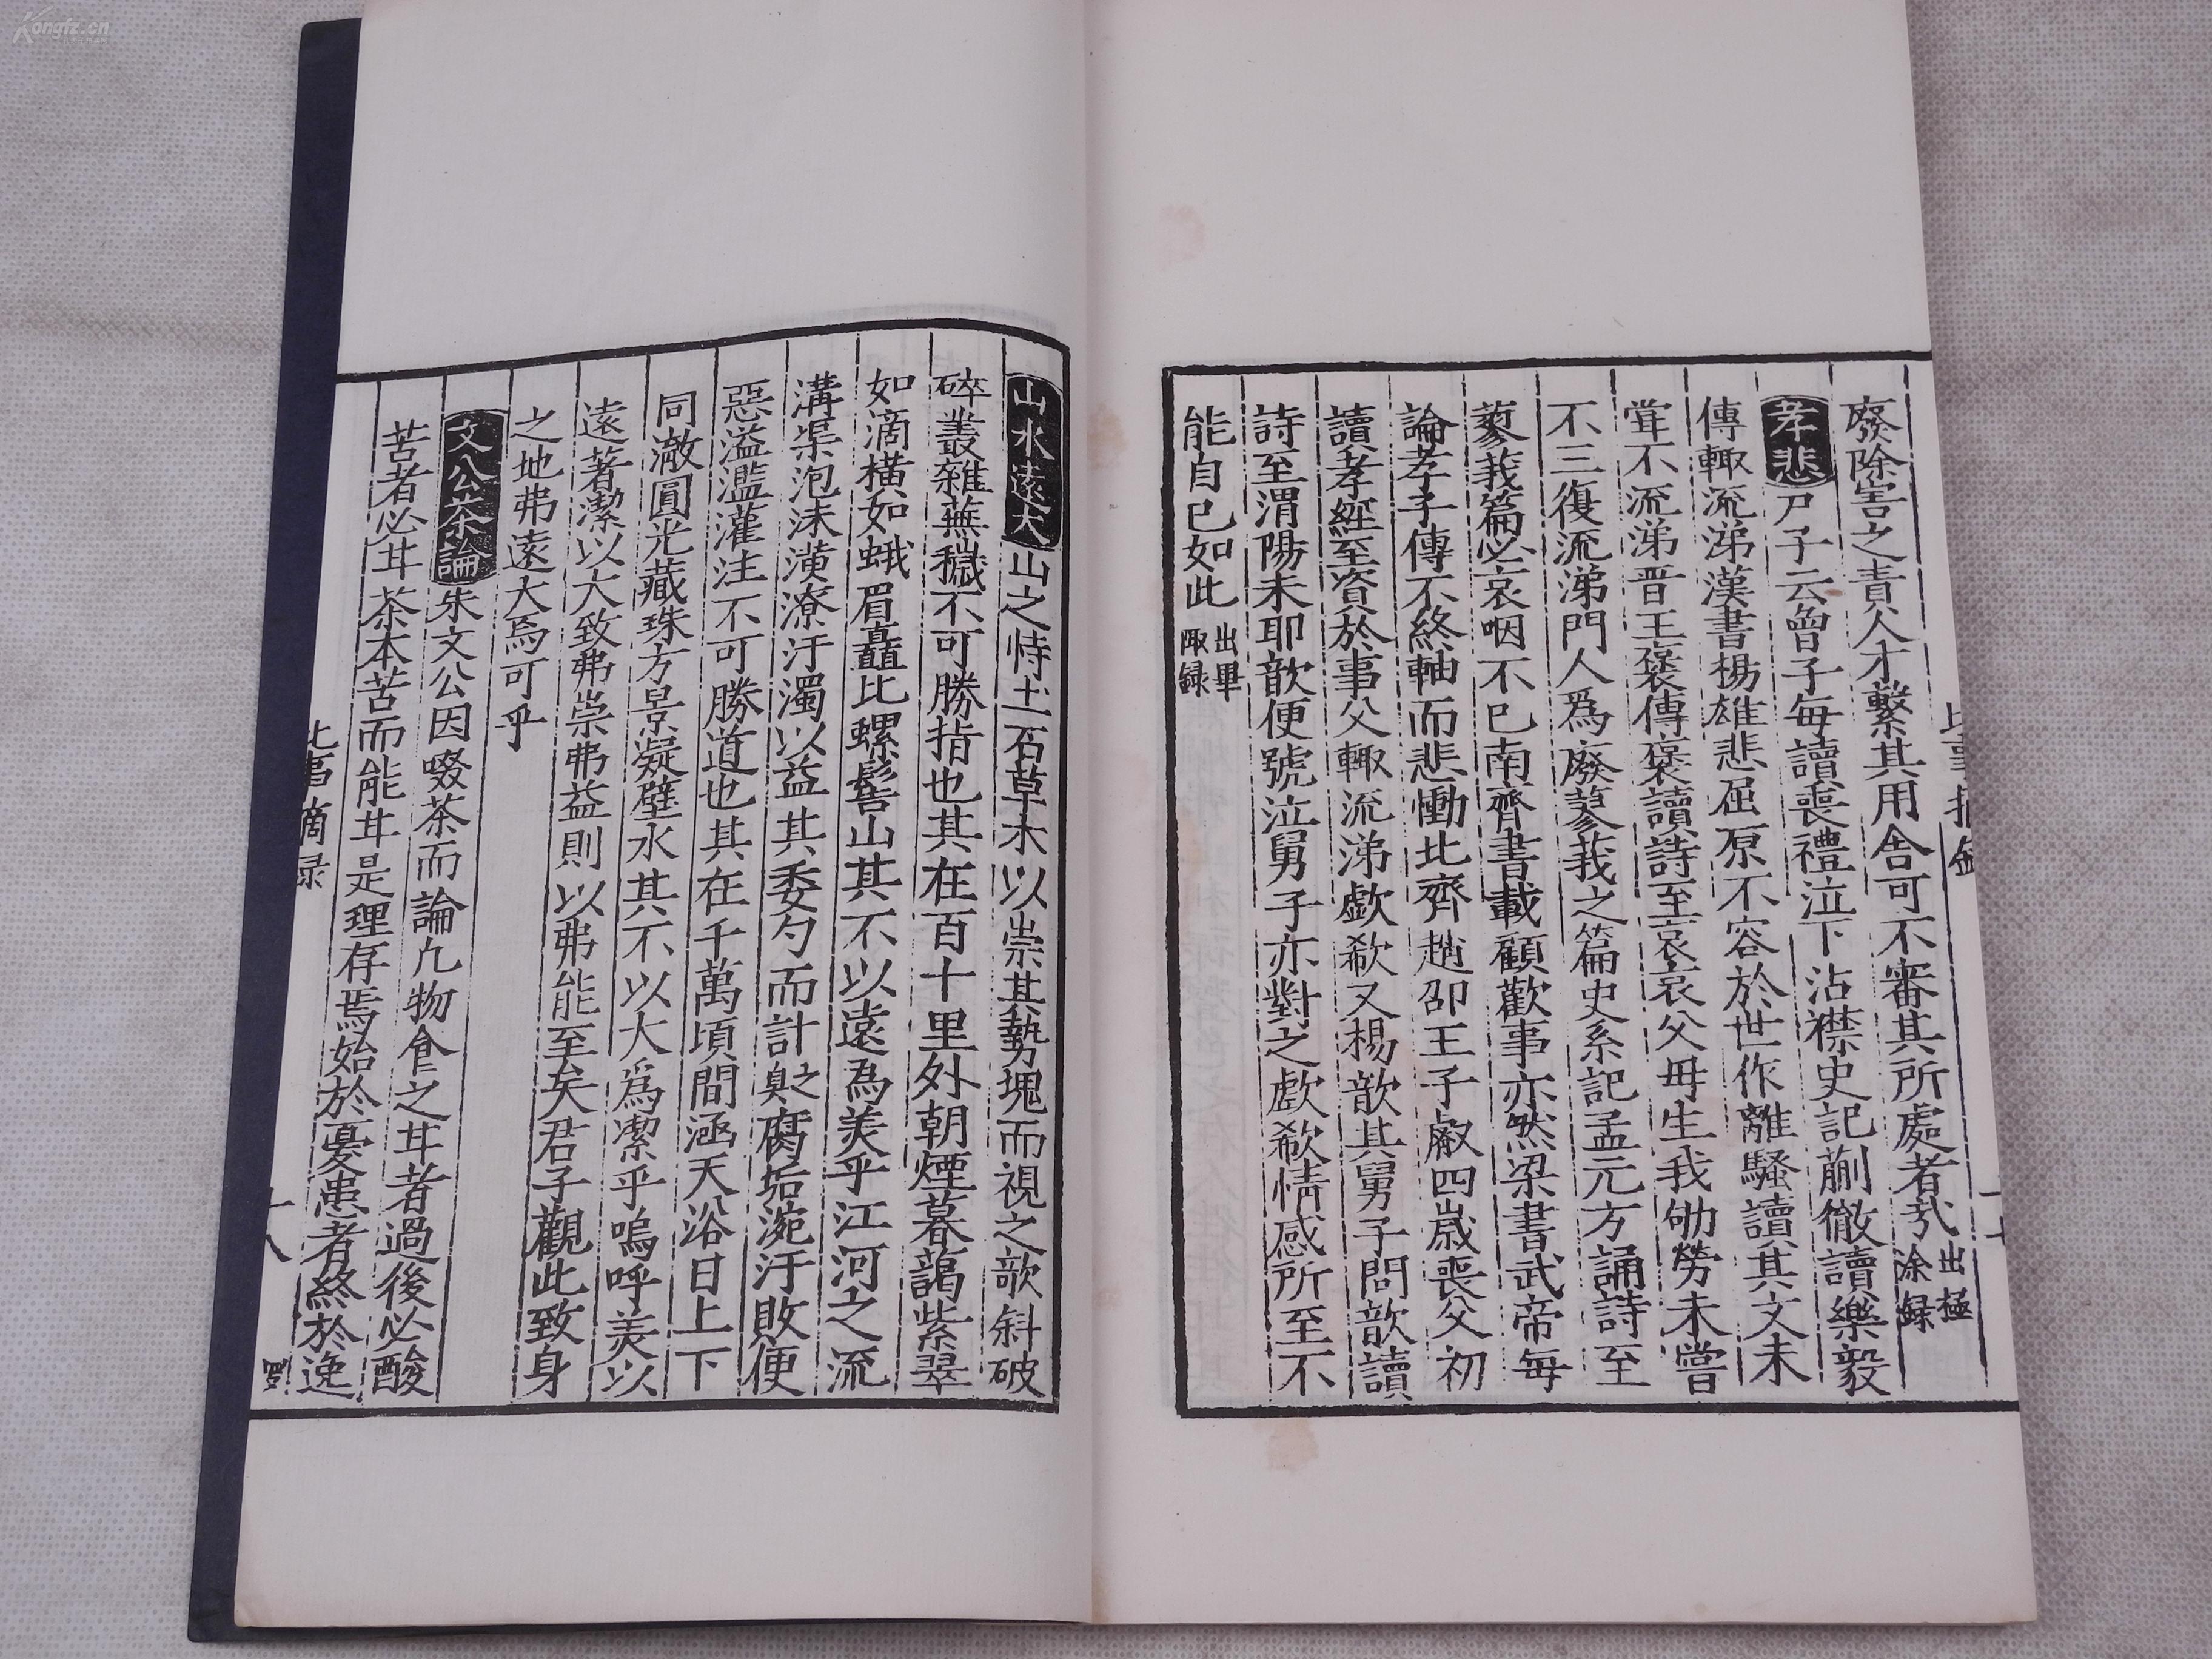 Kongfz.cn
廢除害之責人才繫其用舍可不審其所處者㢤出極
涂録
孝悲尸子云曾子每讀喪禮泣下沾襟史記蒯徹讀樂毅
傳輙流涕漢書楊雄悲屈原不容於世作離騷讀其文未
甞不流涕晋王裒傳裒讀詩至哀哀父毋生我劬勞未嘗
不三復流涕門人爲廢蓼莪之篇史系記孟元方誦詩至
蓼莪篇必哀咽不巳南齊書載顧歡事亦然梁書武帝每
論孝子傳不終軸而悲慟北齊趙郡王子叡四歲喪父初
讀孝經至資於事父輙流涕歔欷又楊歆其舅子問歆讀
詩至渭陽未耶歆便號泣舅子亦對之歔欷情感所至不
能自巳如此出畢
陬録
山水遠大山之恃土石草木以崇其勢塊而視之欹斜破
碎叢雜蕪穢不可勝指也其在百十里外朝煙暮藹紫翠
如滴橫如蛾眉矗比螺髻山其不以遠為美乎江河之流
溝渠泡沫潢潦汙濁以益其委勺而計之臭腐垢涴汙敗便
惡溢濫灌注不可勝道也其在千萬頃間涵天浴日上下
同澈圓光藏珠方景凝璧水其不以大爲潔乎嗚呼美以
遠著潔以大致弗崇弗益則以弗能至矣君子觀此致身
之地弗遠大焉可乎
文公茶論朱文公因啜茶而論凢物食之甘者過後必酸
苦者必甘茶本苦而能甘是理存焉始於憂患者終於逸
比事摘录
十八